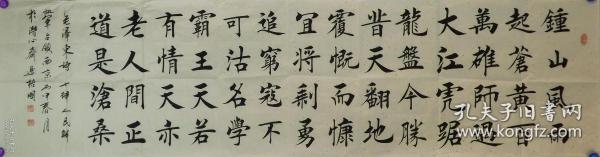 鍾山風雨
起蒼黃百
萬雄師過
大江虎踞
龍盤今勝
昔天翻地
覆慨而慷
宜將剩勇
追窮寇不
可沽名學
霸王天若
有情天亦
老人間正
道是滄桑
毛澤東詩七律人民解
放軍占領南京丙申春月
於潛心齋
孔夫子旧书网